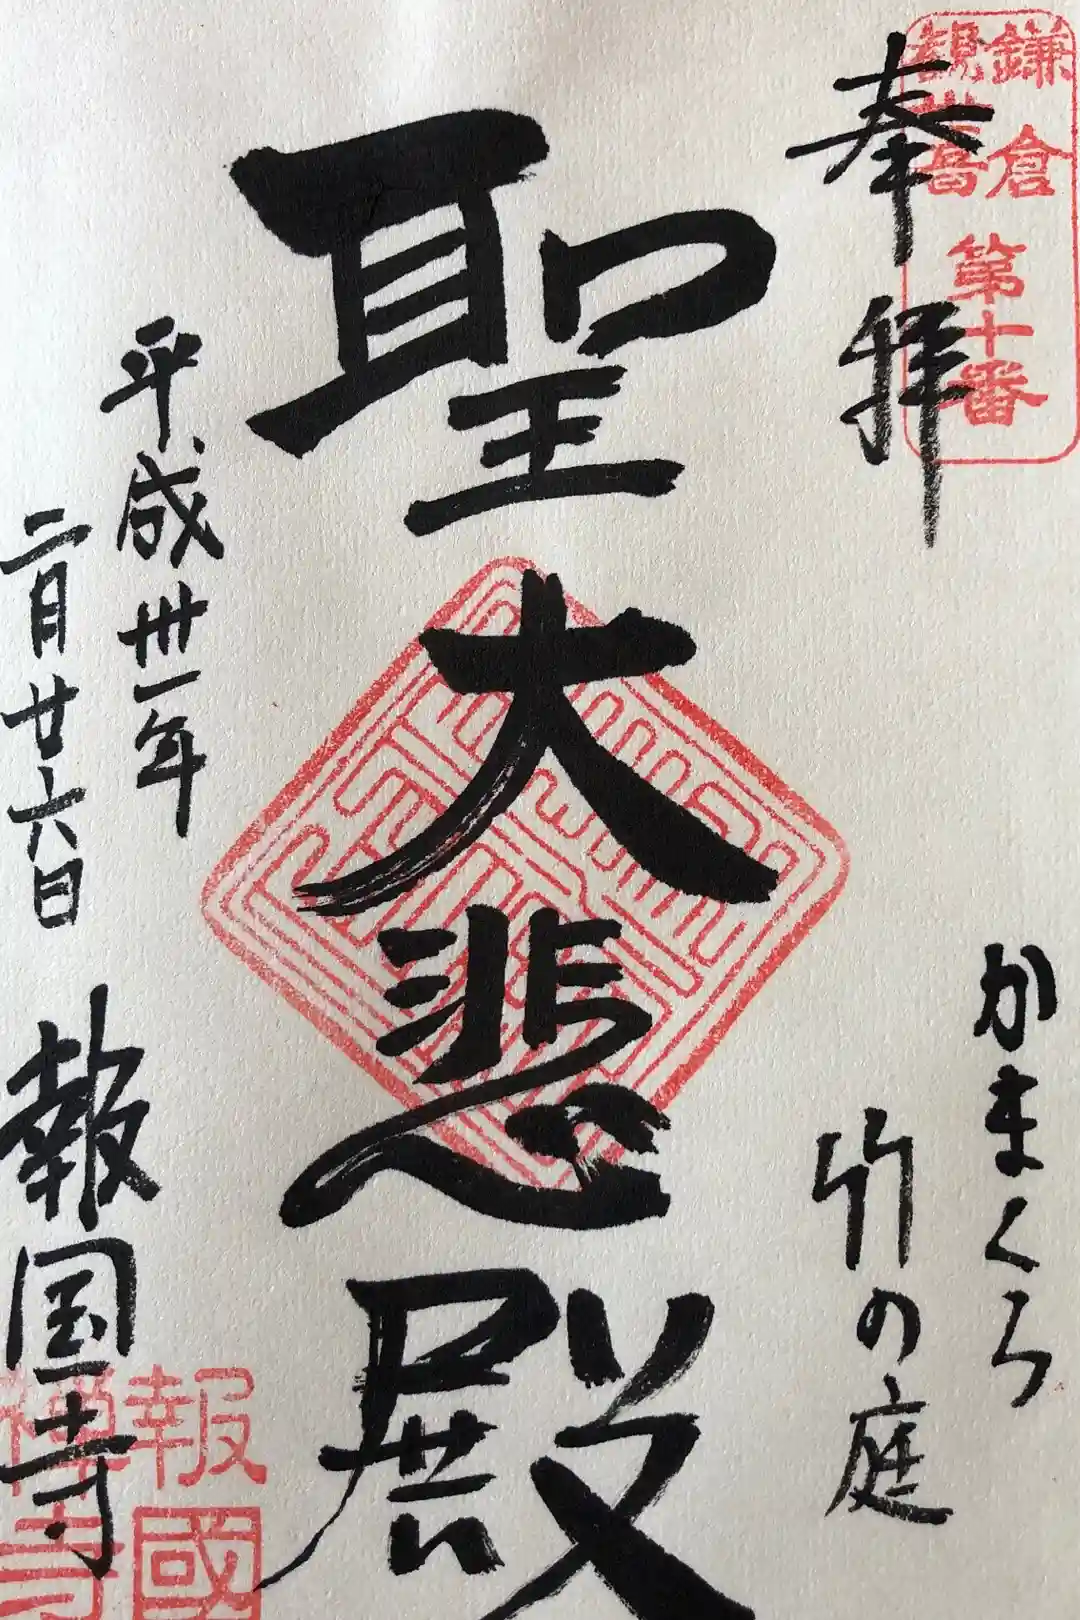 鎌倉
観世音
第十番
奉拝
かまくら
竹の庭
聖大悲殿
平成卅一年
二月廿六日
報国寺
報國
禅寺